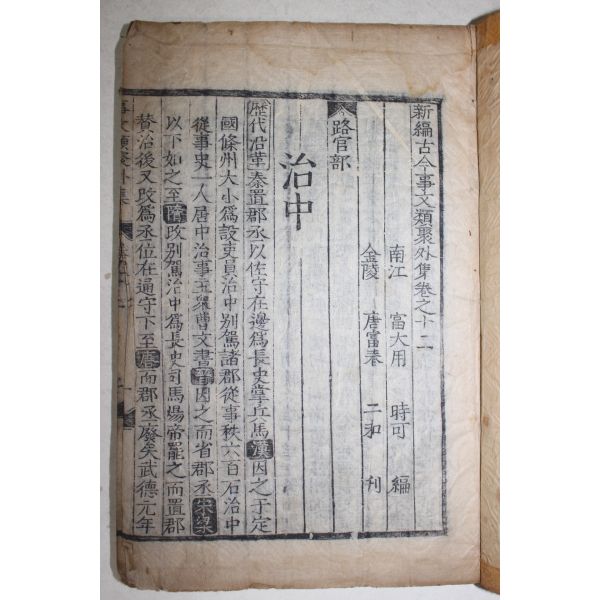 新編古今事文類聚外集卷之十二
南江 富大用 時可 編
金陵 唐富春 二和 刊
路官部
治中
歷代沿革秦置郡丞以佐守在邊為長史掌兵馬漢因之于定
國條州大小為設吏員治中別駕諸郡從事秩六百石治中
從事史一人居中治事主眾曹文書晉因之而省郡丞宋梁
以下如之至隋改別駕治中為長史司馬煬帝罷之而置郡
贊治後又改為丞位在通守下至唐而郡丞廢矣武德元年
事文類聚外集